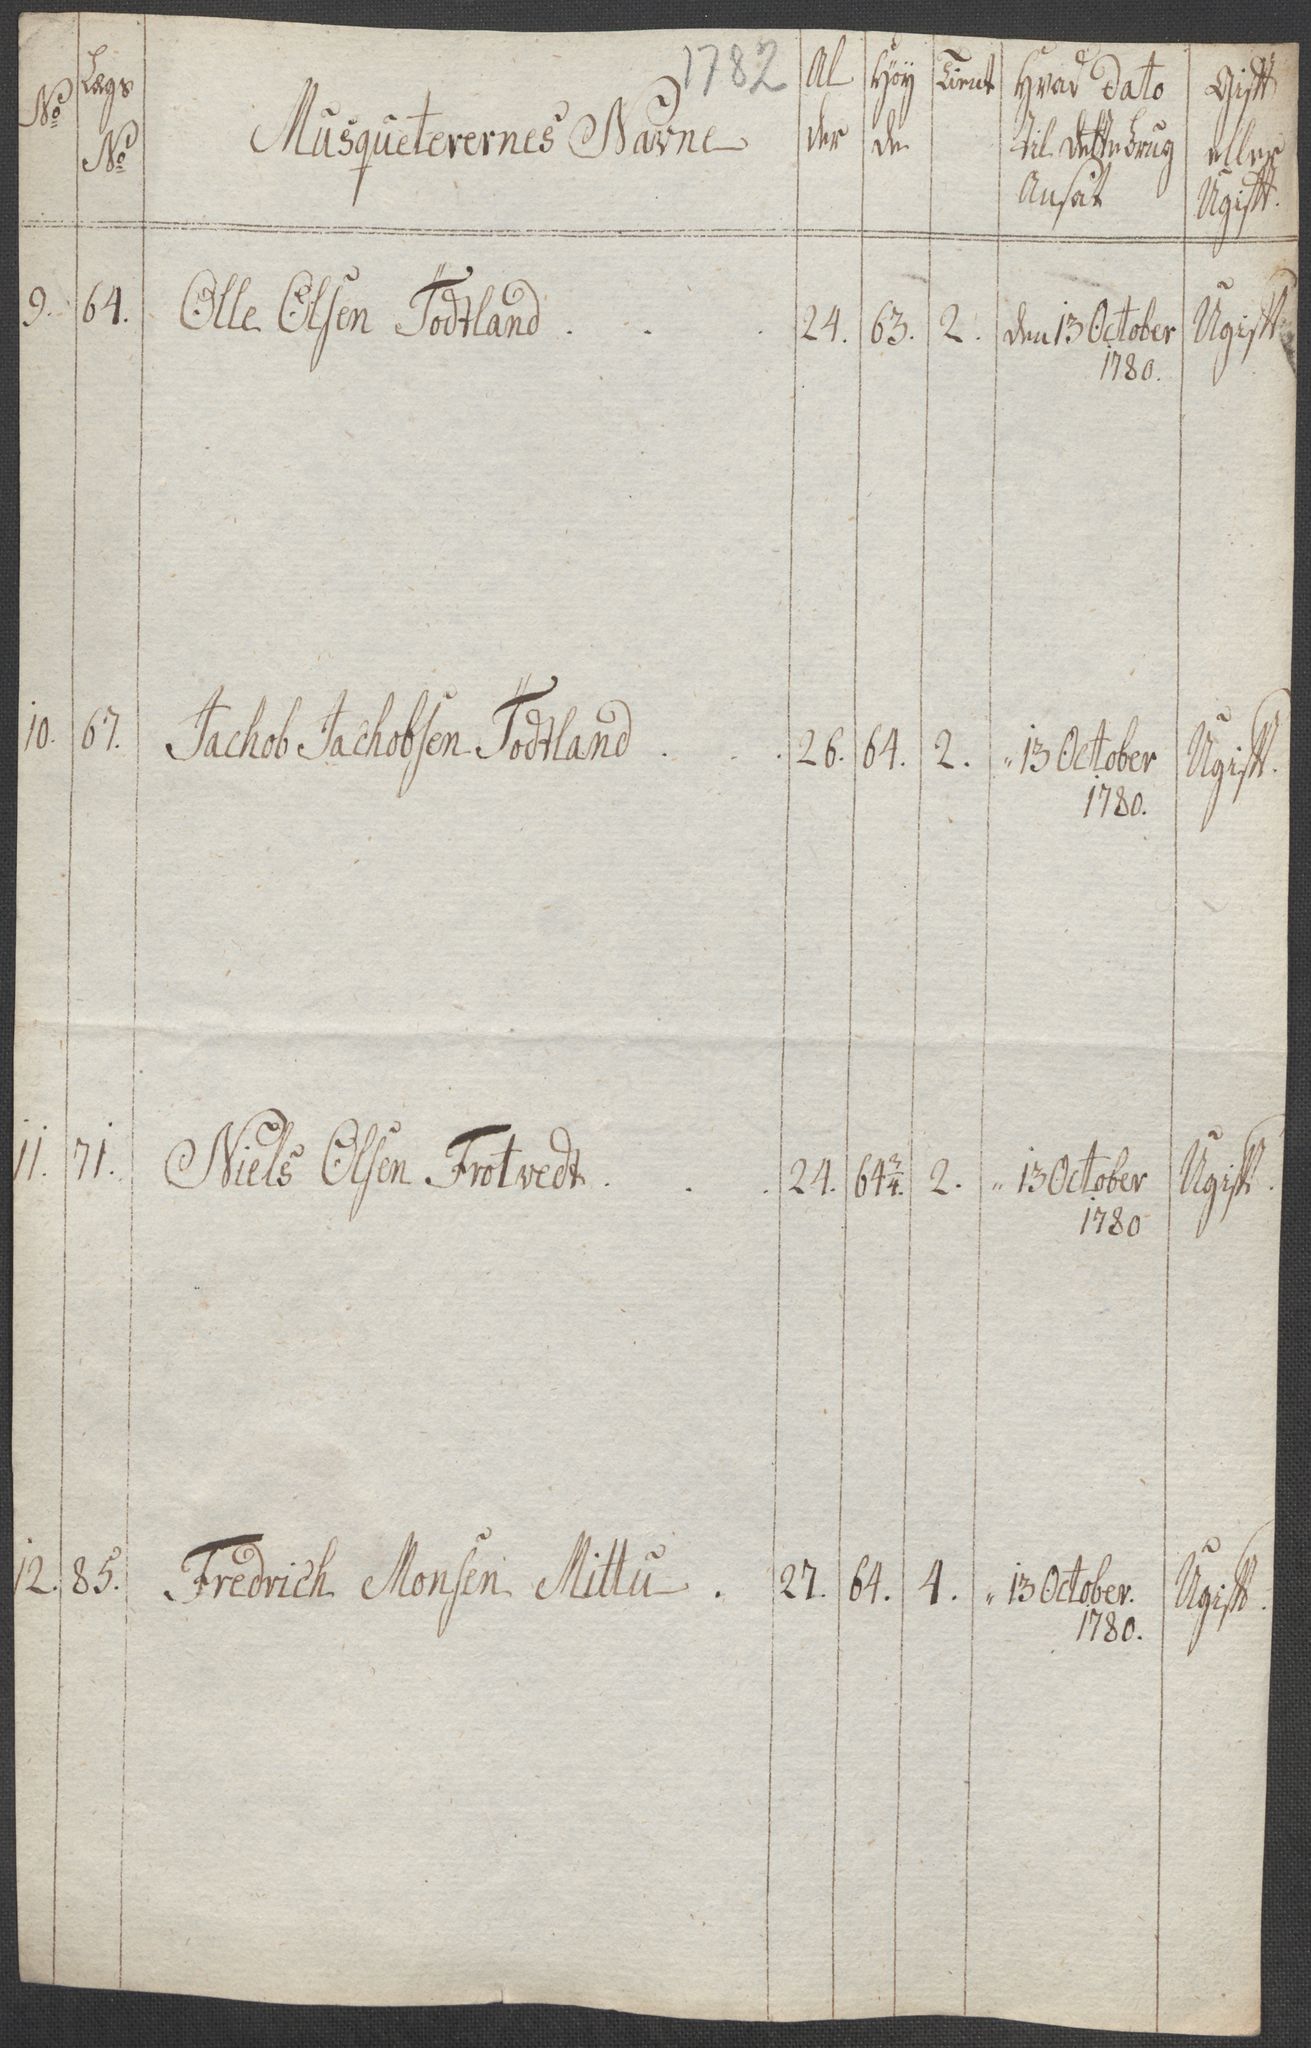 1782
No Lægs No Musqueterernes Navne Al der Høy de Tient Hvad Dato til dette brug Ansat Gift eller Ugift.
9. 64. Olle Olsen Tödtland . . . 24. 63. 2. den 13 October 1780. Ugift
10. 67. Jachob Jachobsen Tödtland . . . 26. 64. 2. " 13 October 1780. Ugift.
11. 71. Niels Olsen Frotvedt . . . 24. 64 3/4. 2. " 13 October 1780 Ugift.
12. 85. Fredrich Monsen Mittu . 27. 64. 4. " 13 October. 1780. Ugift.